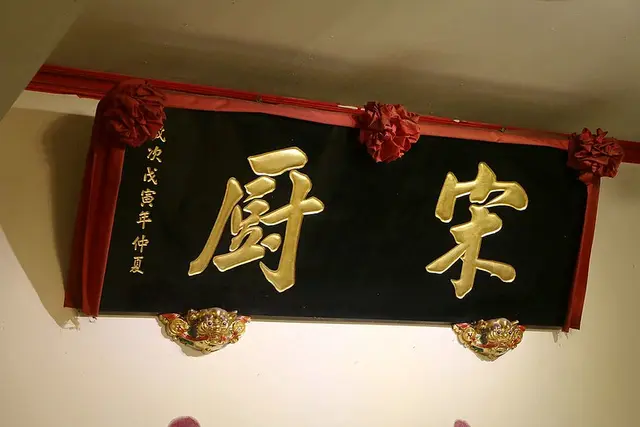 宋厨
歲次戊寅年仲夏